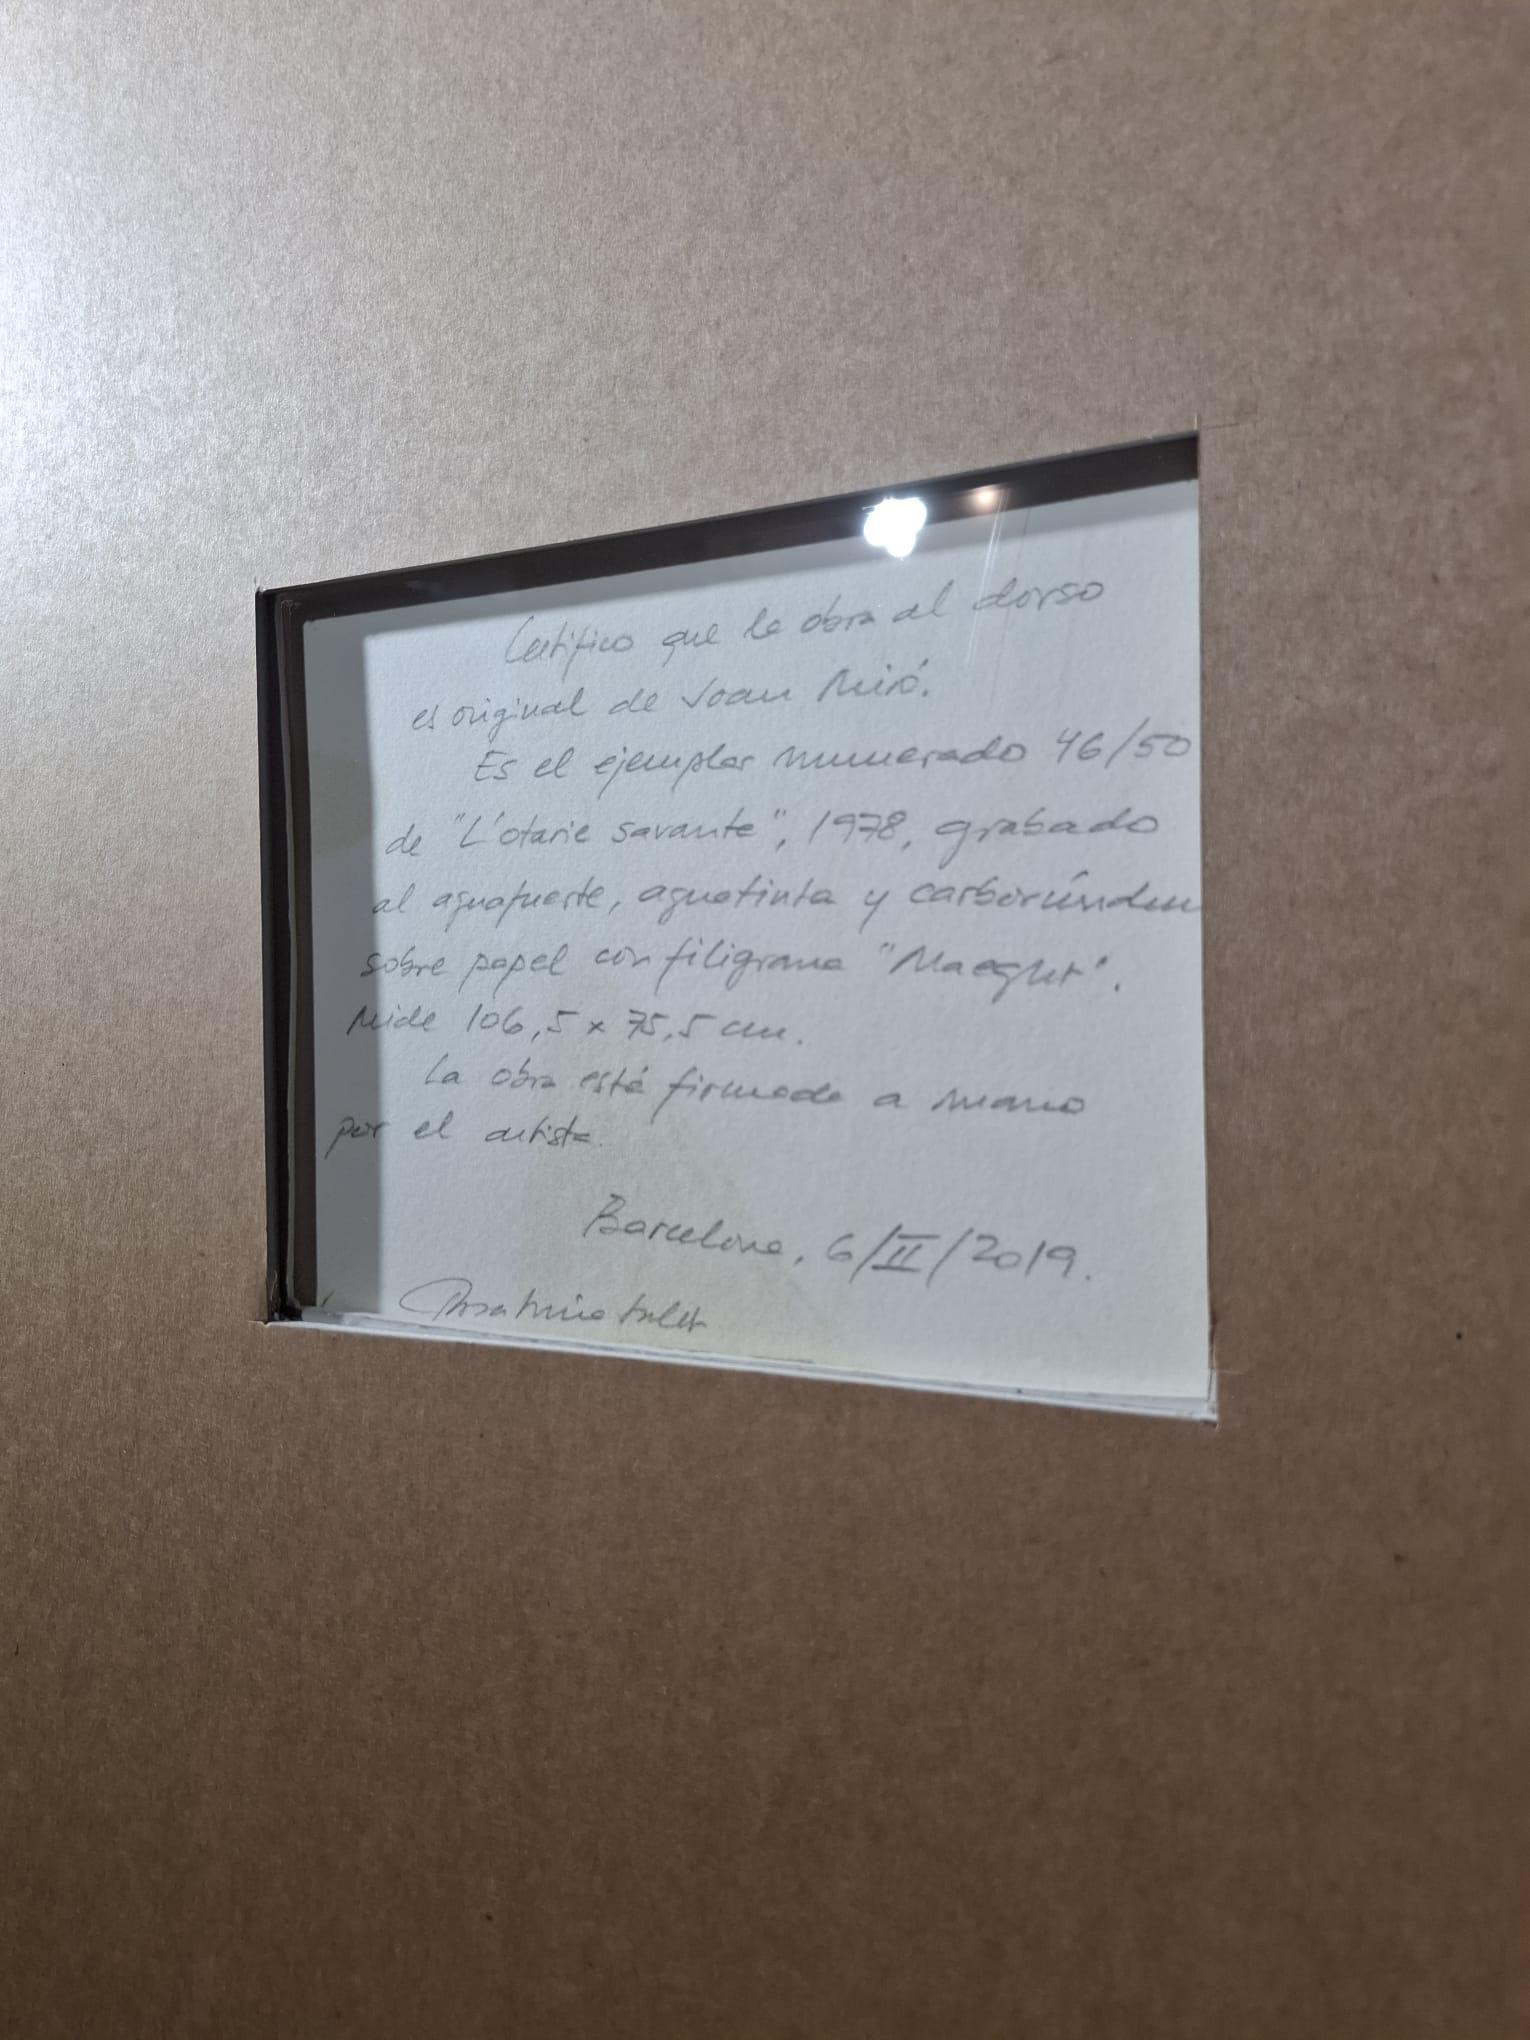 Certifico que la obra al dorso
es original de Joan Miró.
Es el ejemplar numerado 46/50
de "L'otarie savante", 1978, grabado
al aguafuerte, aguatinta y carborúndum
sobre papel con filigrana "Maeght".
Mide 106,5 x 75,5 cm.
La obra está firmada a mano
por el artista.
Barcelona, 6/II/2019.